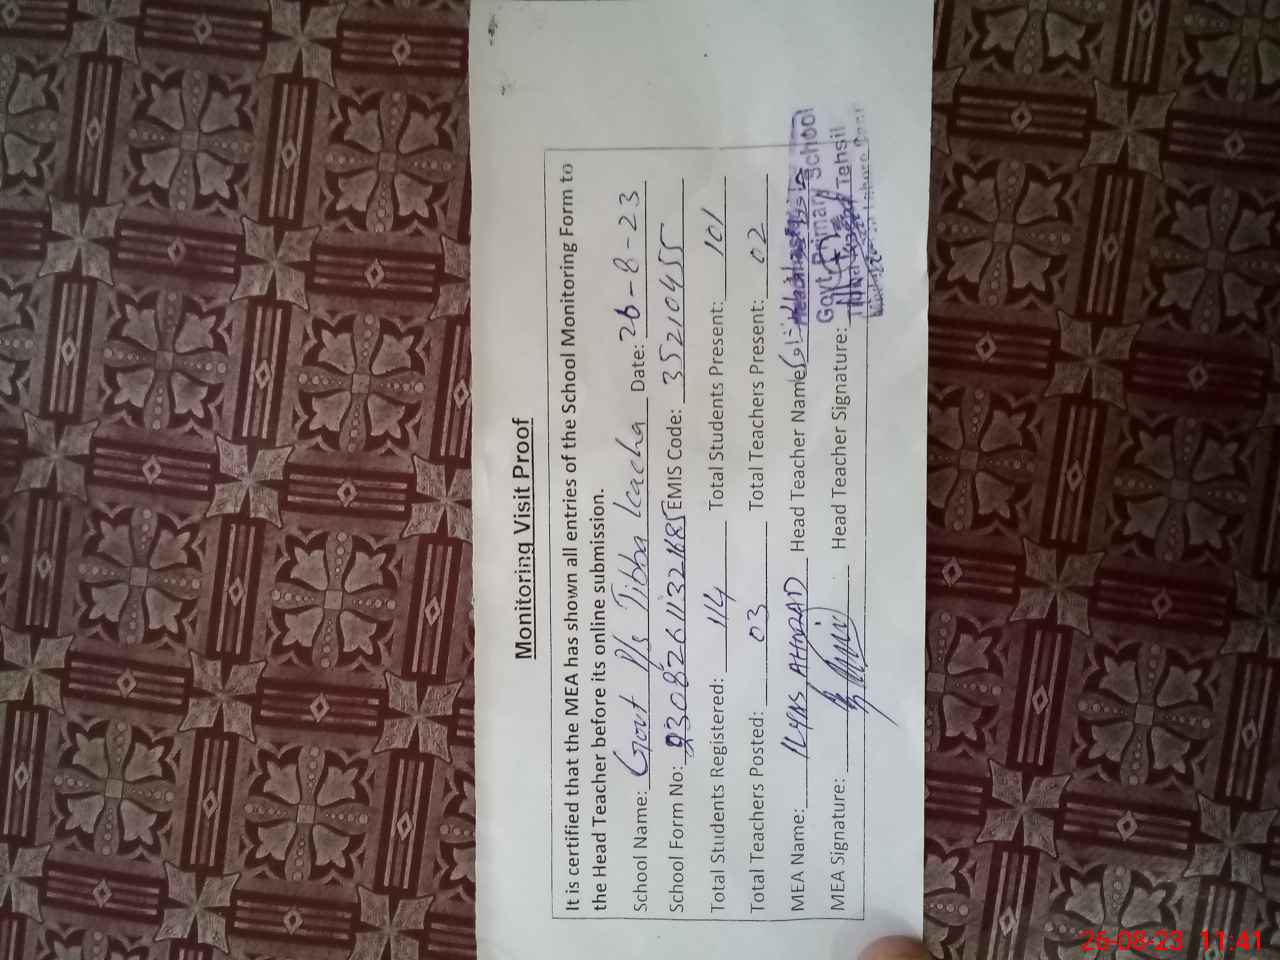 Monitoring Visit Proof
It is certified that the MEA has shown all entries of the School Monitoring Form to
the Head Teacher before its online submission.
School Name: Govt P/s Tibba Kacha Date: 26-8-23
School Form No: 230826113221685 EMIS Code: 35210455
Total Students Registered: 114 Total Students Present: 101
Total Teachers Posted: 03 Total Teachers Present: 02
MEA Name: ILYAS AHMAD Head Teacher Name:
MEA Signature: Head Teacher Signature:
Headmaster
Govt. Primary School
Tehsil
26-08-23 11:41